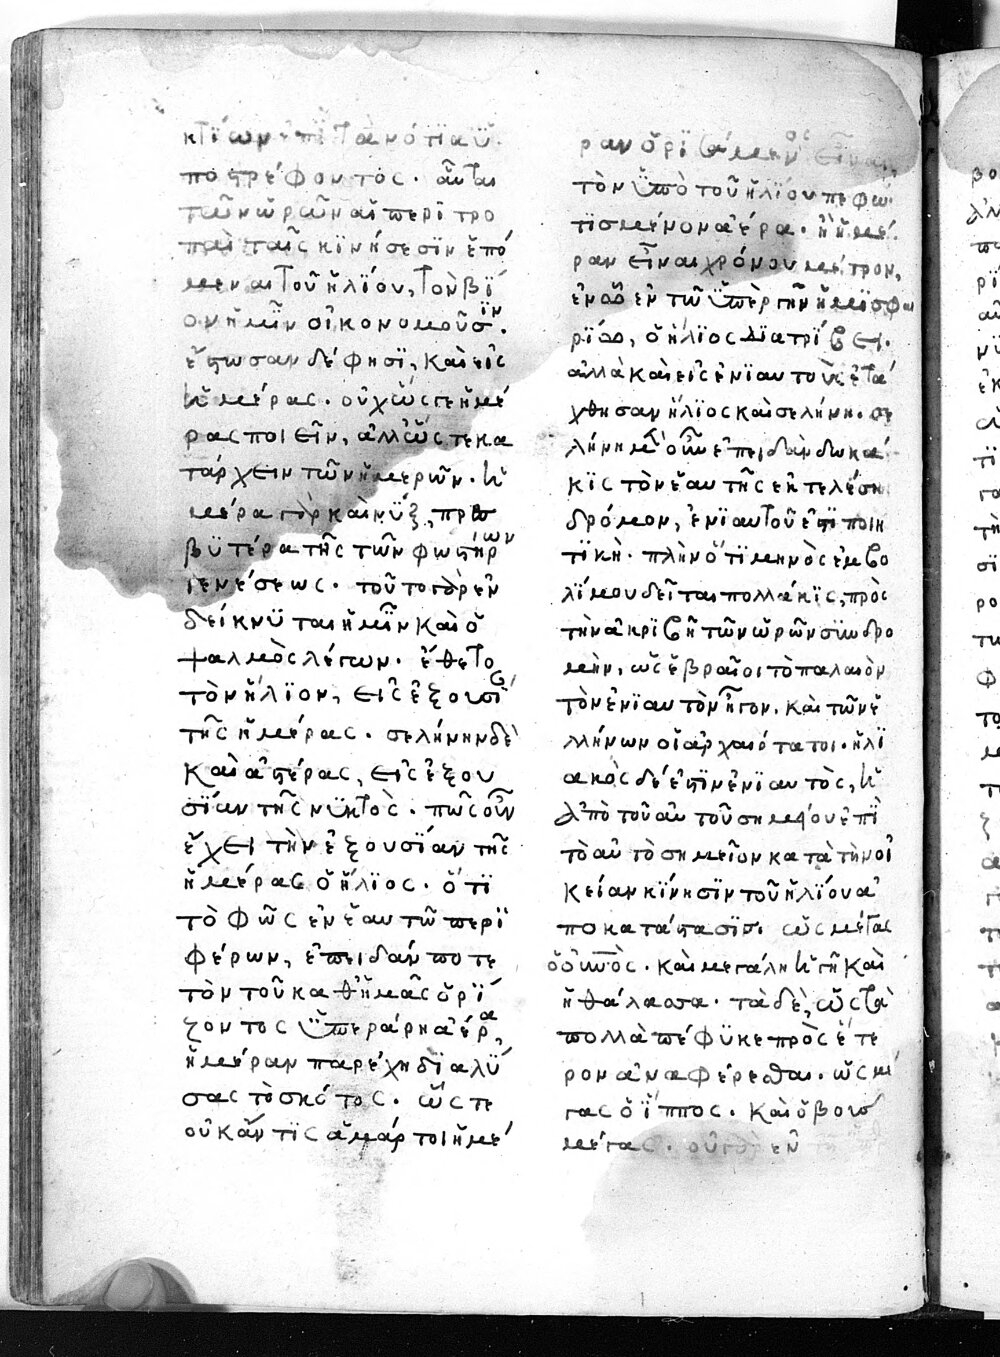 κτίων ἐπὶ τὰ νότια ὑ
ποστρέφοντος. αὗται
τῶν ὡρῶν αἱ περιτρο
παὶ ταῖς κινήσεσιν ἑπό
μεναι τοῦ ἡλίου, τὸν βί
ον ἡμῖν οἰκονομοῦσιν.
ἔστωσαν δέ φησϊ, καὶ εἰς
ἡμέρας. οὐχ ὥστε ἡμέ
ρας ποιεῖν, ἀλλ' ὥστε κα
τάρχειν τῶν ἡμερῶν. ἡ
μέρα γὰρ καὶ νὺξ, πρεσ
βϋτέρα τῆς τῶν φωστήρων
γενέσεως. τοῦτο γὰρ ἐν
δείκνϋται ἡμῖν καὶ ὁ
ψαλμὸς λέγων. ἔθετο
τὸν ἥλϊον, εἰς ἐξουσί
τῆς ἡμέρας. σελήνην δὲ
καὶ ἀστέρας, εἰς ἐξου
σίαν τῆς νϋκτὸς. πῶς οὖν
ἔχει τὴν ἐξουσίαν τῆς
ἡμέρας ὁ ἥλϊος. ὅτϊ
τὸ φῶς ἐν ἑαυτῶ περϊ
φέρων, ἐπειδάν ποτε
τὸν τοῦ καθ' ἡμᾶς ὁρί
ζοντος ὑπεράρη ἀέρα,
ἡμέραν παρέχη διαλύ
σας τὸ σκότος. ὥστε
οὐκ ἄν τϊς ἁμάρτοι ἡμέ
ραν ὁρϊσάμενος εἶναι
τὸν ὑπὸ τοῦ ἡλίου πεφω
τισμένον ἀέρα. ἢ ἡμέ
ραν εἶναι χρόνου μέτρον,
ἐν ῶ ἐν τῶ ὑπὲρ γῆν ἡμϊσφαι
ρίω, ὁ ἥλϊος διατρίβει.
ἀλλὰ καὶ εἰς ἐνϊαυτοὺς ἐτά
χθησαν ἥλϊος καὶ σελήνη. σε
λήνη μὲν οὖν ἐπειδὰν δωδεκά
κϊς τὸν ἑαυτῆς ἐκτελέση
δρόμον, ἐνϊαυτοῦ ἐστϊ ποιη
τϊκή. πλὴν ὅτϊ μηνὸς ἐμβο
λίμου δεῖται πολλάκϊς, πρὸς
τὴν ἀκρϊβῆ τῶν ὡρῶν συνδρο
μὴν, ὡς ἑβραῖοι τὸ παλαιὸν
τὸν ἐνϊαυτὸν ἦγον. καὶ τῶν ἑ
λλήνων οἱ ἀρχαιότατοι. ἡλϊ
ακὸς δέ ἐστϊν ἐνϊαυτὸς, ἡ
ἀπὸ τοῦ αὐτοῦ σημείου ἐπὶ
τὸ αὐτὸ σημεῖον κατὰ τὴν οἰ
κείαν κίνησϊν τοῦ ἡλίου ἀ
ποκατάστασϊσ. ὡς μέγας
ὁ οὐνὸς. καὶ μεγάλη ἡ γῆ καὶ
ἡ θάλασσα. τὰ δὲ, ὡς τὰ
πολλὰ πέφϋκε πρὸς ἕτε
ρον ἀναφέρεσθαι. ὡς μέ
γας ὁ ἵππος. καὶ ὁ βοῦς
μέγας. οὐ γὰρ ἐν